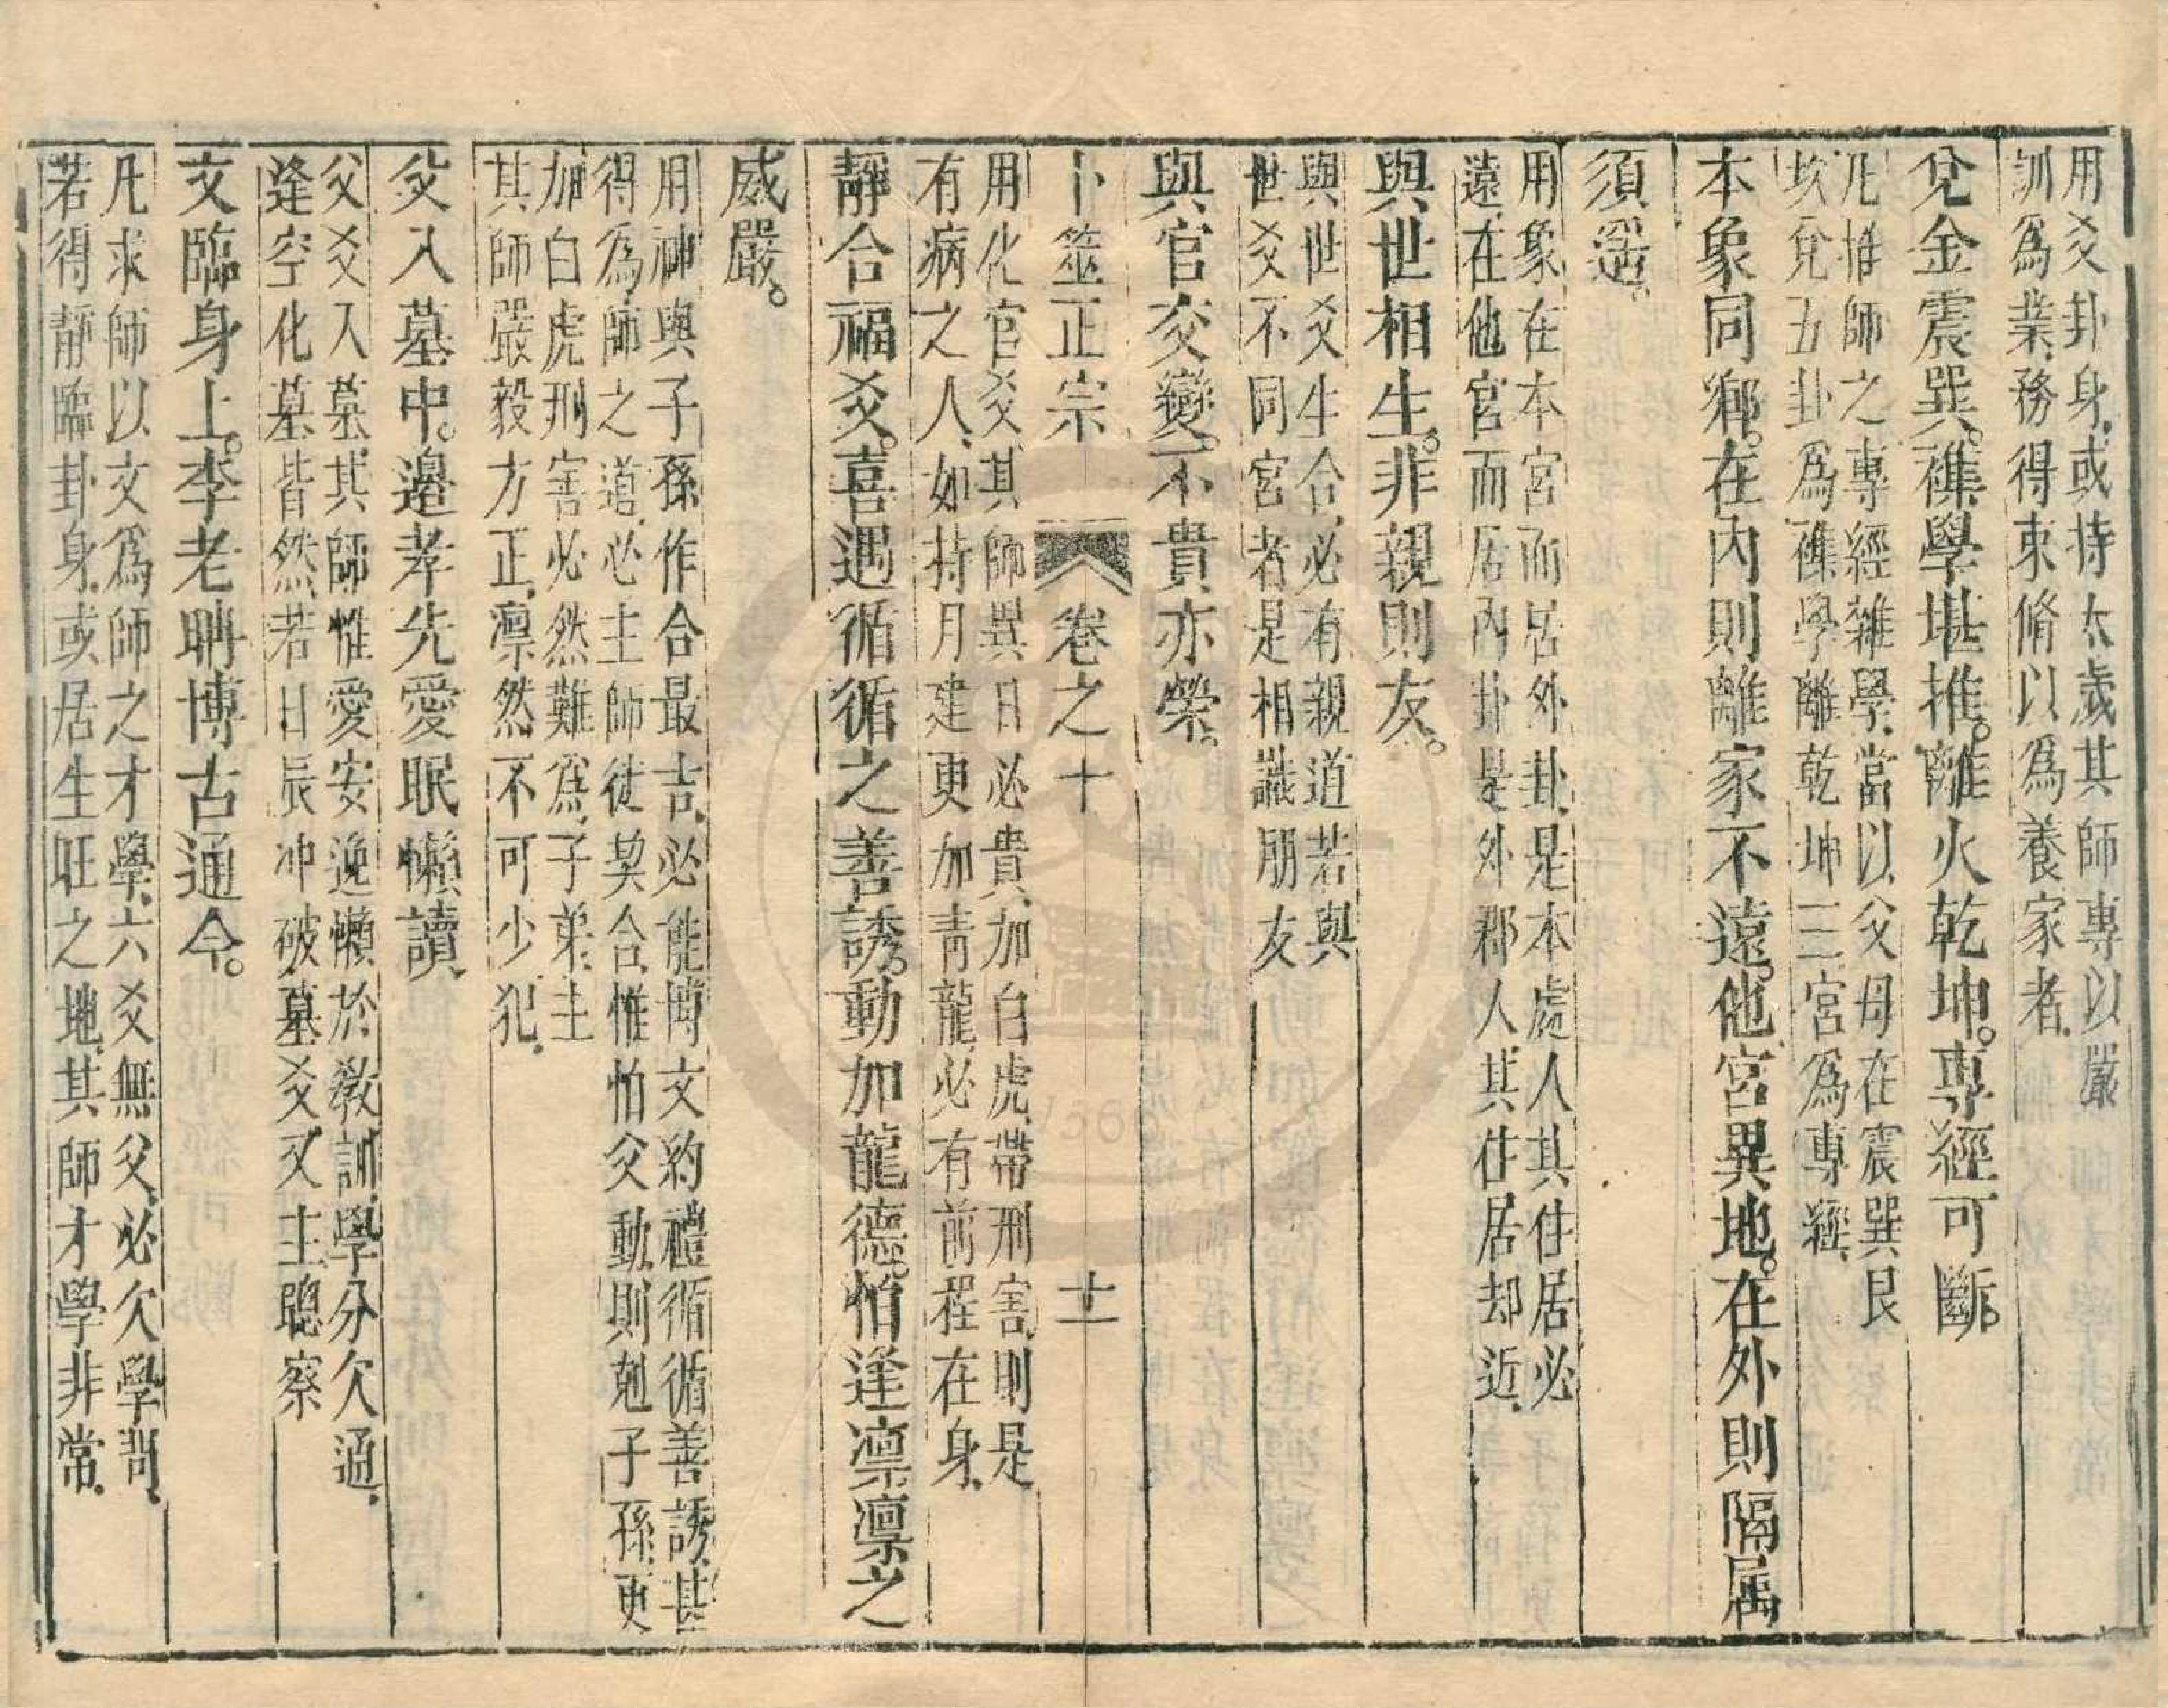 用爻卦身或持太歲其師專以嚴
訓爲業務得束脩以爲養家者
兌金震巽雜學堪推離火乾坤專經可斷
凡惟師之專經雜學當以父母在震巽艮
坎兌五卦爲雜學離乾坤三宮爲專經
本象同鄉在內則離家不遠他宮異地在外則隔属
須遥
用象在本宮而居外卦是本處人其住居必
遠在他宮而居內卦是外郡人其住居却近
與世相生非親則友
與世爻生合必有親道若與
世爻不同宮者是相識朋友
與官交變不貴亦榮
卜筮正宗 卷之十 十一
用化官爻其師異日必貴加白虎帶刑害則是
有病之人如持月建更加青龍必有前程在身
靜合福爻喜遇循循之善誘動加龍德怕逢凛凛之
威嚴
用神與子孫作合最吉必能博文約禮循循善誘甚
得爲師之道必主師徒契合惟怕父動則剋子孫更
加白虎刑害必然難爲子弟主
其師嚴毅方正凛然不可少犯
父入墓中邉孝先愛眠懶讀
父爻入墓其師惟愛安逸懶於教訓學分欠通
逢空化墓皆然若日辰冲破墓爻又主聰察
文臨身上李老聃博古通今
凡求師以文爲師之才學六爻無父必欠學問
若得靜臨卦身或居生旺之地其師才學非常